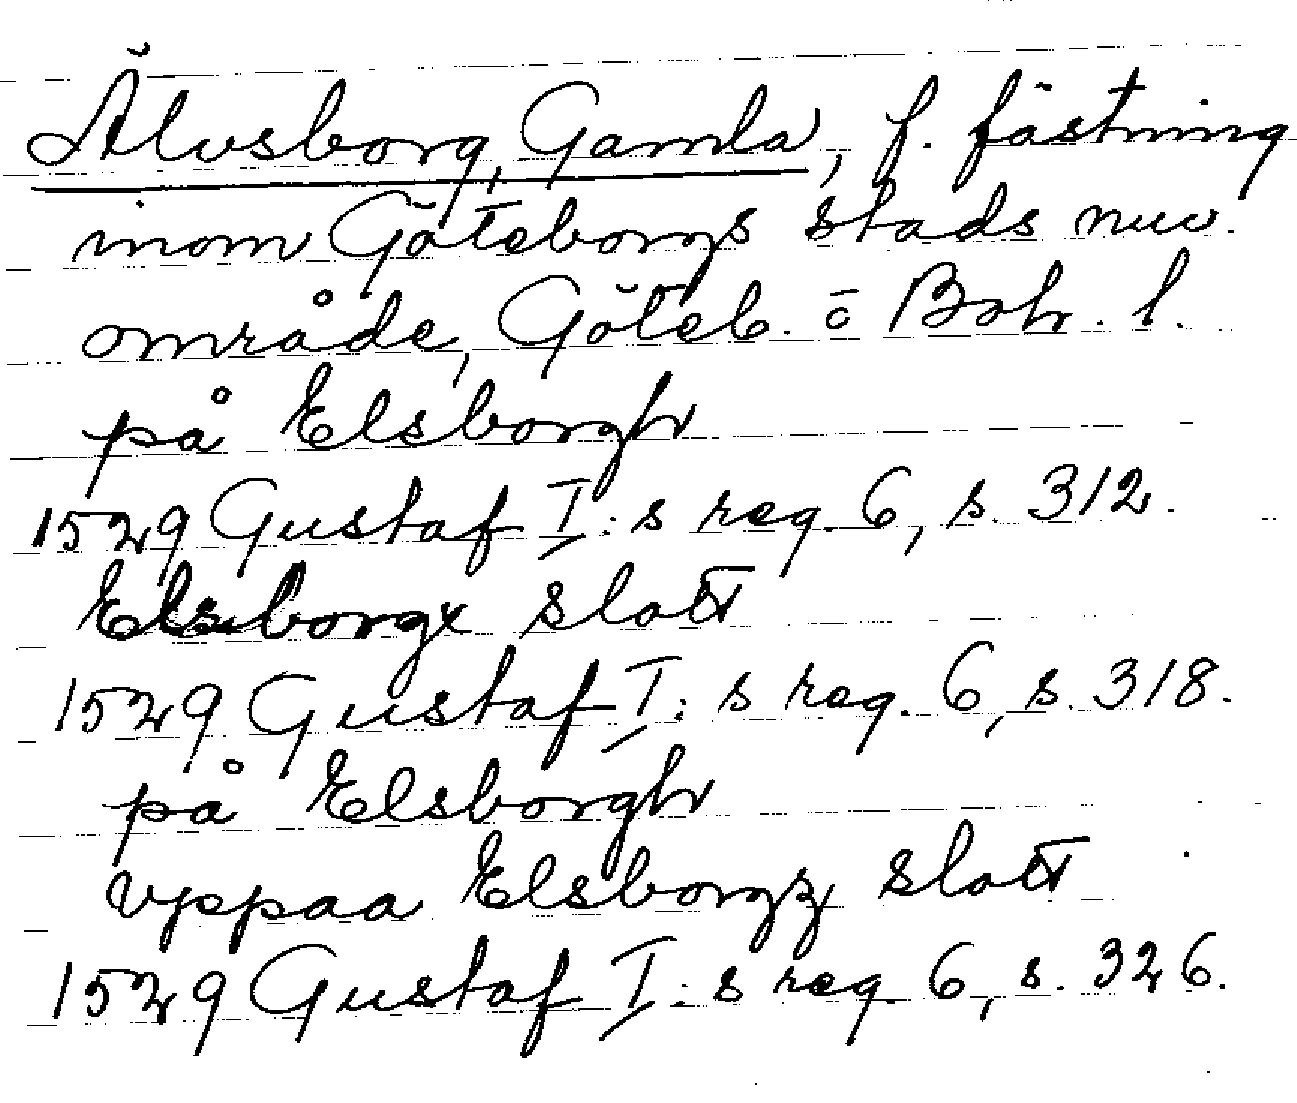 Älvsborg, Gamla, f. fästning
inom Göteborgs stads nuv.
område, Göteb. o Boh. l.
på Elsborgh
1529 Gustaf I:s reg. 6, s. 312.
Elsborgx slott
1529 Gustaf I:s reg. 6, s. 318.
på Elsborgh
vppaa Elsborgz slott
1529 Gustaf I:s reg. 6, s. 326.